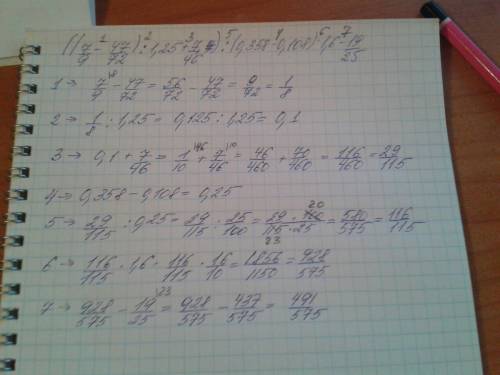 ((7/9 - 47/72) : 1,25 + 7/46) : (0,358 - 0,108) · 1,6 - 19/25
1 → 7/9 - 47/72 = 56/72 - 47/72 = 9/72 = 1/8
2 → 1/8 : 1,25 = 0,125 : 1,25 = 0,1
3 → 0,1 + 7/46 = 1/10 + 7/46 = 46/460 + 70/460 = 116/460 = 29/115
4 → 0,358 - 0,108 = 0,25
5 → 29/115 : 0,25 = 29/115 : 25/100 = 29 · 100/115 · 25 = 580/575 = 116/115
6 → 116/115 · 1,6 = 116/115 · 16/10 = 1856/1150 = 928/575
7 → 928/575 - 19/25 = 928/575 - 437/575 = 491/575